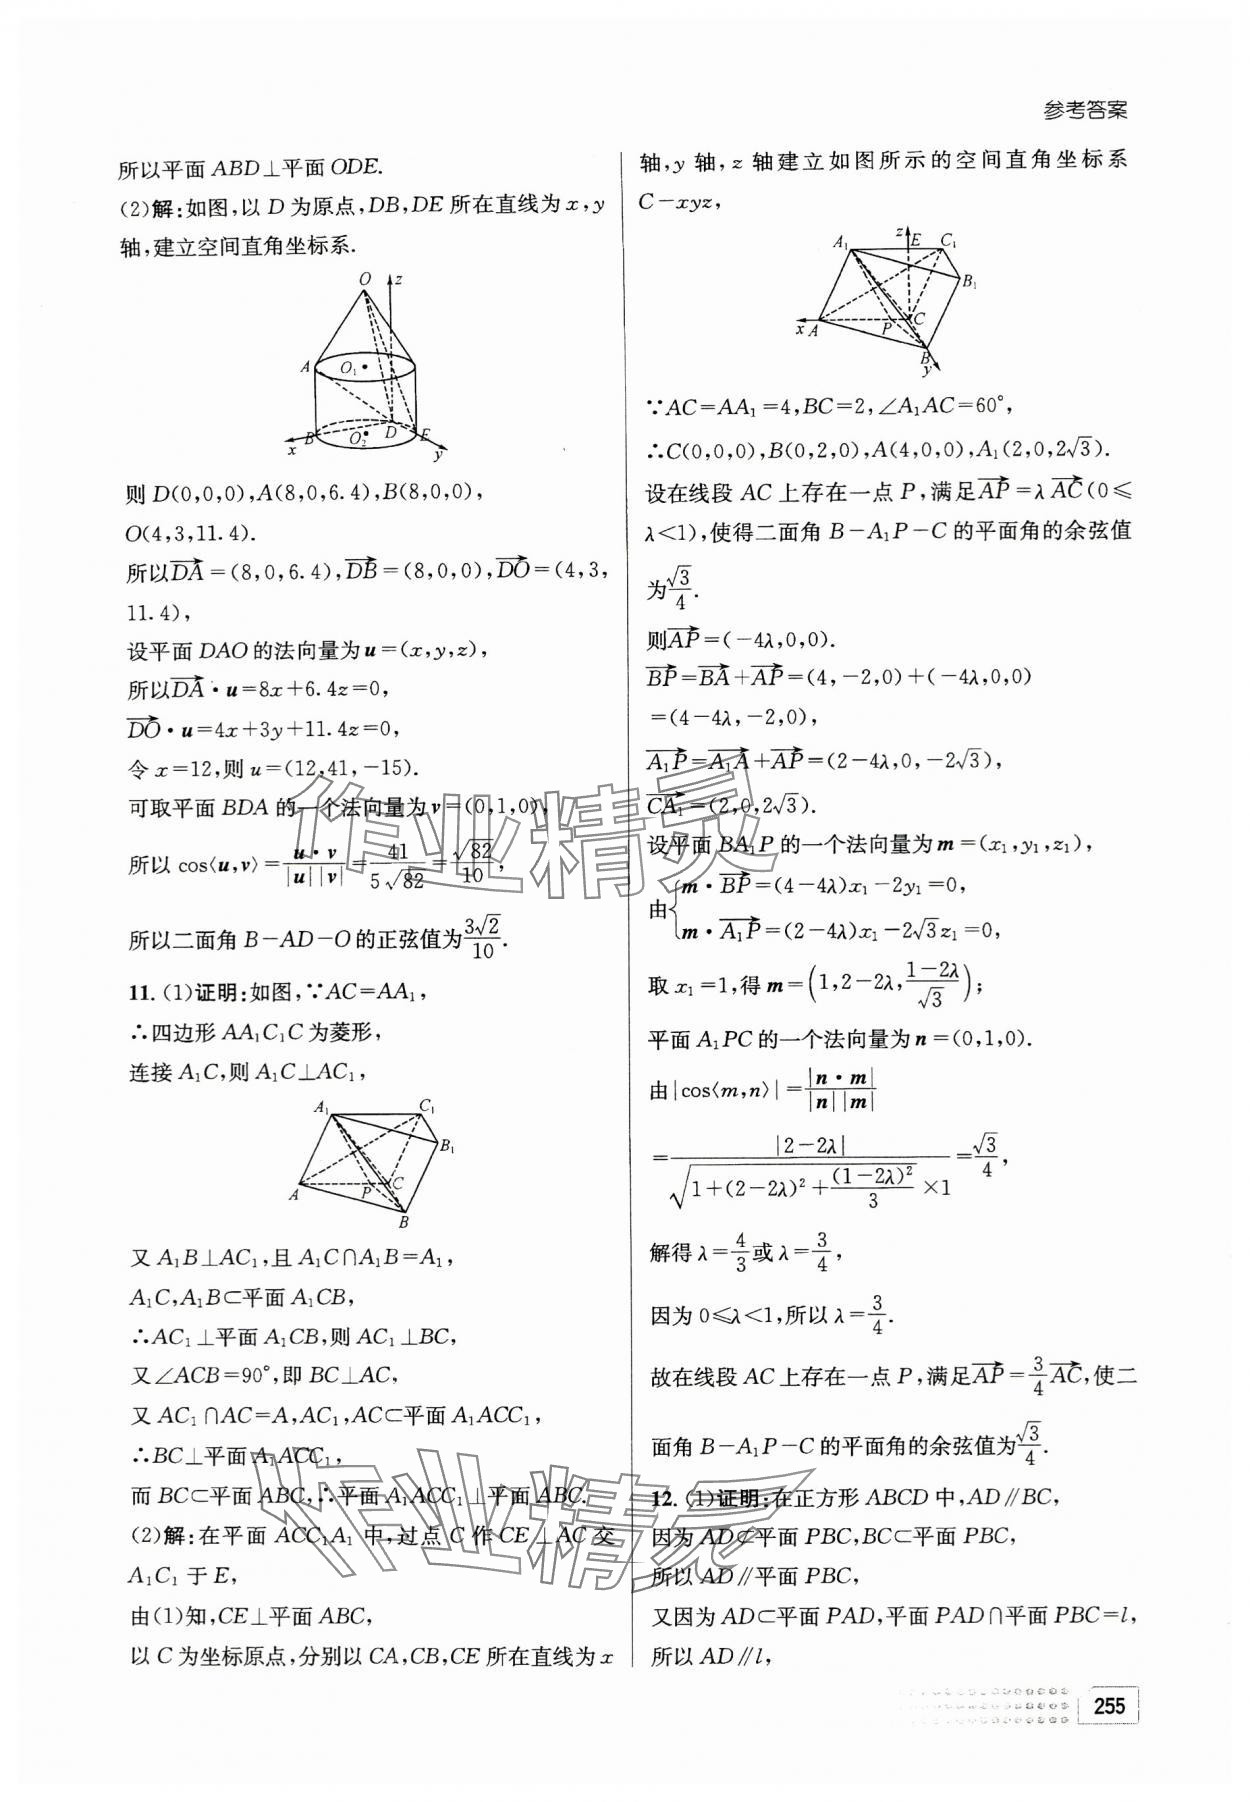 参考答案
所以平面 ABD⊥平面 ODE.
(2)解:如图,以 D 为原点,DB,DE 所在直线为 x,y
轴,建立空间直角坐标系.
O z
A O₁
B O₂ D E
x y
则 D(0,0,0),A(8,0,6.4),B(8,0,0),
O(4,3,11.4).
所以$\overrightarrow{DA}$=(8,0,6.4),$\overrightarrow{DB}$=(8,0,0),$\overrightarrow{DO}$=(4,3,
11.4),
设平面 DAO 的法向量为 u=(x,y,z),
所以$\overrightarrow{DA}$·u=8x+6.4z=0,
$\overrightarrow{DO}$·u=4x+3y+11.4z=0,
令 x=12,则 u=(12,41,-15).
可取平面 BDA 的一个法向量为 v=(0,1,0),
所以 cos⟨u,v⟩=$\frac{u·v}{|u||v|}$=$\frac{41}{5\sqrt{82}}$=$\frac{\sqrt{82}}{10}$,
所以二面角 B-AD-O 的正弦值为$\frac{3\sqrt{2}}{10}$.
11. (1)证明:如图,∵AC=AA₁,
∴四边形 AA₁C₁C 为菱形,
连接 A₁C,则 A₁C⊥AC₁,
A₁ C₁
B₁
A P C
B
又 A₁B⊥AC₁,且 A₁C∩A₁B=A₁,
A₁C,A₁B⊂平面 A₁CB,
∴AC₁⊥平面 A₁CB,则 AC₁⊥BC,
又∠ACB=90°,即 BC⊥AC,
又 AC₁∩AC=A,AC₁,AC⊂平面 A₁ACC₁,
∴BC⊥平面 A₁ACC₁,
而 BC⊂平面 ABC,∴平面 A₁ACC₁⊥平面 ABC.
(2)解:在平面 ACC₁A₁ 中,过点 C 作 CE⊥AC 交
A₁C₁ 于 E,
由(1)知,CE⊥平面 ABC,
以 C 为坐标原点,分别以 CA,CB,CE 所在直线为 x
轴,y 轴,z 轴建立如图所示的空间直角坐标系
C-xyz,
A₁ z E C₁
B₁
x A P C
B
y
∵AC=AA₁=4,BC=2,∠A₁AC=60°,
∴C(0,0,0),B(0,2,0),A(4,0,0),A₁(2,0,2$\sqrt{3}$).
设在线段 AC 上存在一点 P,满足$\overrightarrow{AP}$=λ$\overrightarrow{AC}$(0≤
λ<1),使得二面角 B-A₁P-C 的平面角的余弦值
为$\frac{\sqrt{3}}{4}$.
则$\overrightarrow{AP}$=(-4λ,0,0).
$\overrightarrow{BP}$=$\overrightarrow{BA}$+$\overrightarrow{AP}$=(4,-2,0)+(-4λ,0,0)
=(4-4λ,-2,0),
$\overrightarrow{A₁P}$=$\overrightarrow{A₁A}$+$\overrightarrow{AP}$=(2-4λ,0,-2$\sqrt{3}$),
$\overrightarrow{CA₁}$=(2,0,2$\sqrt{3}$).
设平面 BA₁P 的一个法向量为 m=(x₁,y₁,z₁),
由{m·$\overrightarrow{BP}$=(4-4λ)x₁-2y₁=0,
m·$\overrightarrow{A₁P}$=(2-4λ)x₁-2$\sqrt{3}$z₁=0,
取 x₁=1,得 m=(1,2-2λ,$\frac{1-2λ}{\sqrt{3}}$);
平面 A₁PC 的一个法向量为 n=(0,1,0).
由|cos⟨m,n⟩|=$\frac{|n·m|}{|n||m|}$
=$\frac{|2-2λ|}{\sqrt{1+(2-2λ)²+\frac{(1-2λ)²}{3}}×1}$=$\frac{\sqrt{3}}{4}$,
解得 λ=$\frac{4}{3}$或 λ=$\frac{3}{4}$,
因为 0≤λ<1,所以 λ=$\frac{3}{4}$.
故在线段 AC 上存在一点 P,满足$\overrightarrow{AP}$=$\frac{3}{4}$$\overrightarrow{AC}$,使二
面角 B-A₁P-C 的平面角的余弦值为$\frac{\sqrt{3}}{4}$.
12. (1)证明:在正方形 ABCD 中,AD∥BC,
因为 AD⊄平面 PBC,BC⊂平面 PBC,
所以 AD∥平面 PBC,
又因为 AD⊂平面 PAD,平面 PAD∩平面 PBC=l,
所以 AD∥l,
作业精灵
作业精灵
255